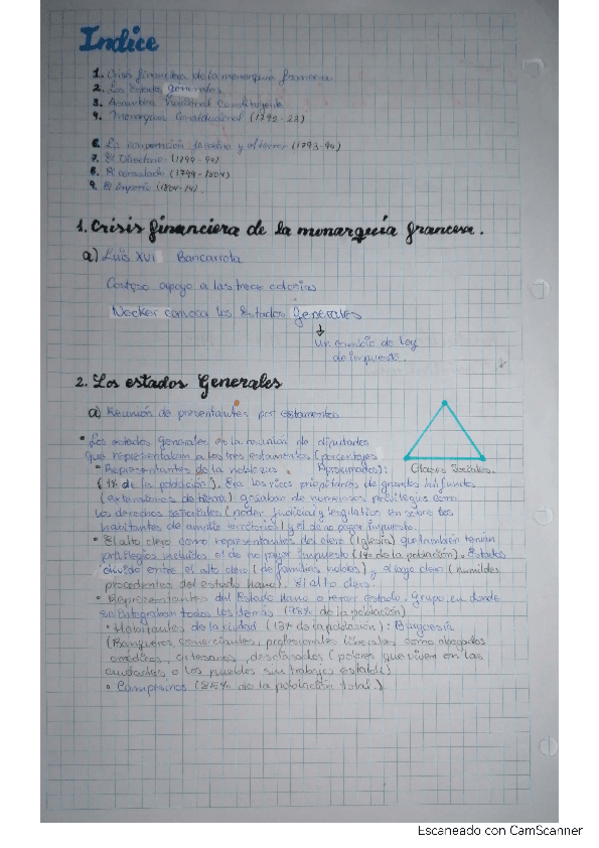 Indice
1. Crisis financiera de la monarquía francesa
2. Los Estados Generales
3. Asamblea Nacional Constituyente
4. Monarquía Constitucional (1792-23)
6. La convención jacobina y el terror (1793-94)
7. El Directorio (1794-99)
8. El consulado (1799-1804)
9. El Imperio (1804-14).
1. Crisis financiera de la monarquía francesa.
a) Luis XVI Bancarrota
Costoso apoyo a las trece colonias
Necker convoca los Estados Generales
↓
un cambio de ley
de impuesto.
2. Los estados Generales
a) Reunión de presentantes por estamentos
• Los estados Generales es la reunión de diputados
que representaban a los tres estamentos (porcentajes
Aproximados):
• Representantes de la nobleza
Clases Sociales.
(1% de la población). Era los ricos propietarios de grandes
(extensiones de tierra) gozaban de numerosos privilegios como
los derechos señoriales (poder judicial y legislativo en sobre los
habitantes de territorios) y el de no pagar impuesto.
• El alto clero como representantes del clero (Iglesia) que también tenían
privilegios incluidos el de no pagar impuesto (1% de la población). Estados
dividido entre el alto clero (de familias nobles) y el bajo clero (humildes
procedentes del estado llano). El alto clero.
• Representantes del Estado llano o tercer estado. Grupo en donde
se integraban todos los demás (98% de la población)
• Habitantes de la ciudad (13% de la población): Burguesía
(Banqueros, comerciantes, profesionales liberales como abogados
médicos, artesanos, (pobres que viven en las
ciudades o los pueblos sin trabajos estables)
• Campesinos (85% de la población total.)
Escaneado con CamScanner